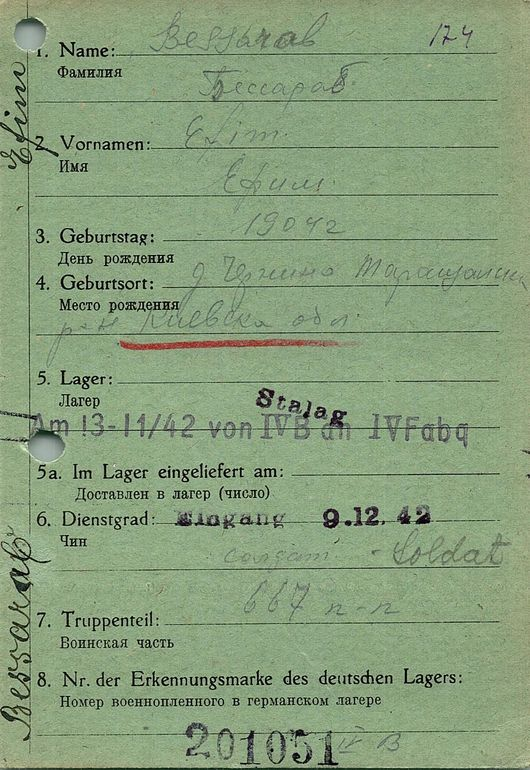 1. Name: Bessarab 124
Фамилия
Бессараб.
2. Vornamen: Efim.
Имя
Ефим.
3. Geburtstag: 1904 г
День рождения
4. Geburtsort: д
Место рождения
р-н Киевска обл.
5. Lager:
Лагер
Stalag
Am 13-11/42 von IVB an IVF abg
5a. Im Lager eingeliefert am:
Доставлен в лагер (число)
6. Dienstgrad: Eingang 9.12.42
Чин
солдат - Soldat
7. Truppenteil: 667 п-п
Воинская часть
8. Nr. der Erkennungsmarke des deutschen Lagers:
Номер военнопленного в германском лагере
201051 IV B
Bessarab
Efim